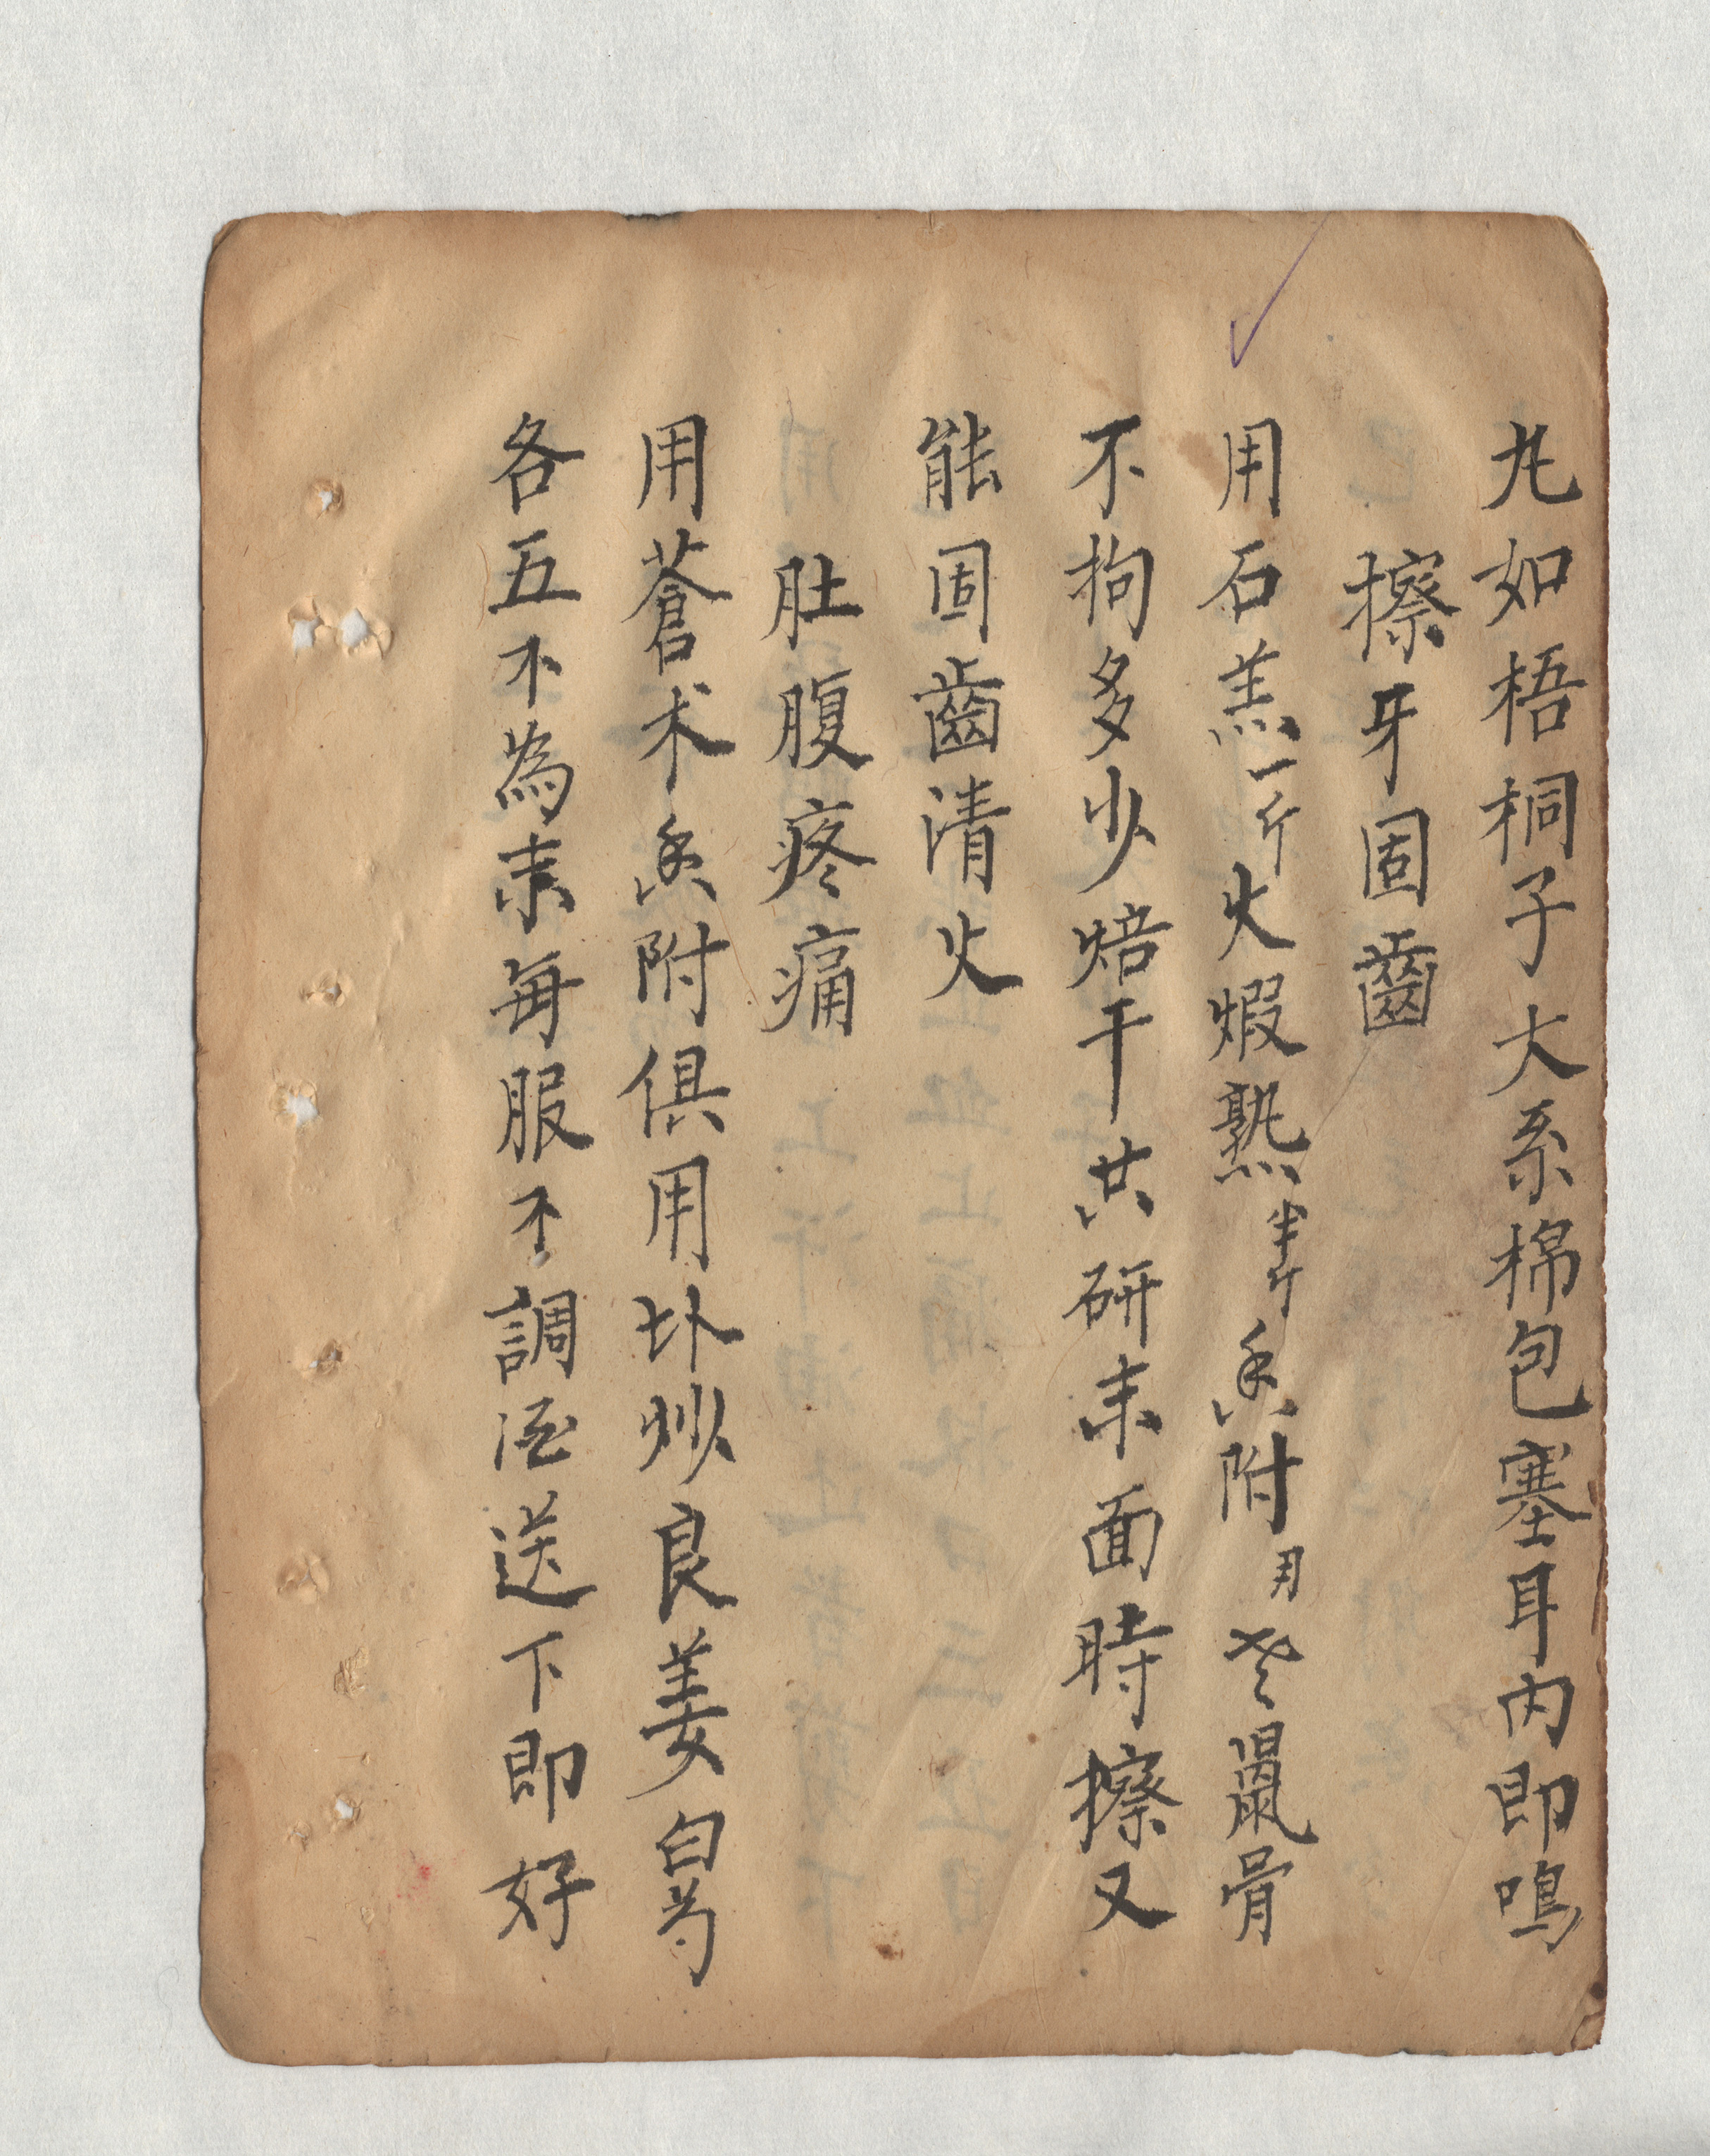 丸如梧桐子大系棉包塞耳内即鳴
擦牙固齒
用石羔一斤火煆熟半斤香附用老鼠骨
不拘多少焙干共研末面時擦又
能固齒清火
肚腹疼痛
用蒼术香附俱用炒良姜白芍
各五不為末每服不調酒送下即好